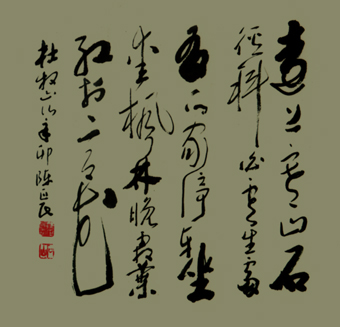 遠上寒山石
徑斜白雲生處
有人家停車坐
愛楓林晚霜葉
紅於二月花
杜牧山行辛卯陳